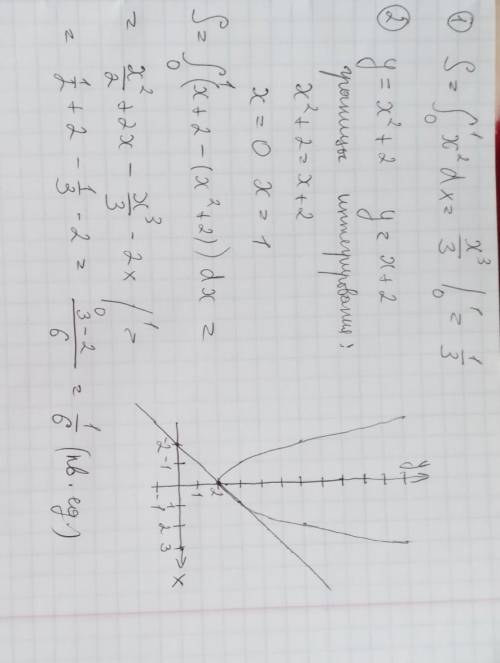 ① S = ∫₀¹ x² dx = x³/3 |₀¹ = 1/3
② y = x² + 2 y = x + 2
границы интегрирования:
x² + 2 = x + 2
x = 0 x = 1
S = ∫₀¹ (x + 2 - (x² + 2)) dx =
= x²/2 + 2x - x³/3 - 2x |₀¹ =
= 1/2 + 2 - 1/3 - 2 = (3-2)/6 = 1/6 (кв. ед.)
y
2
1
-2 -1 1 2 3 x
-1